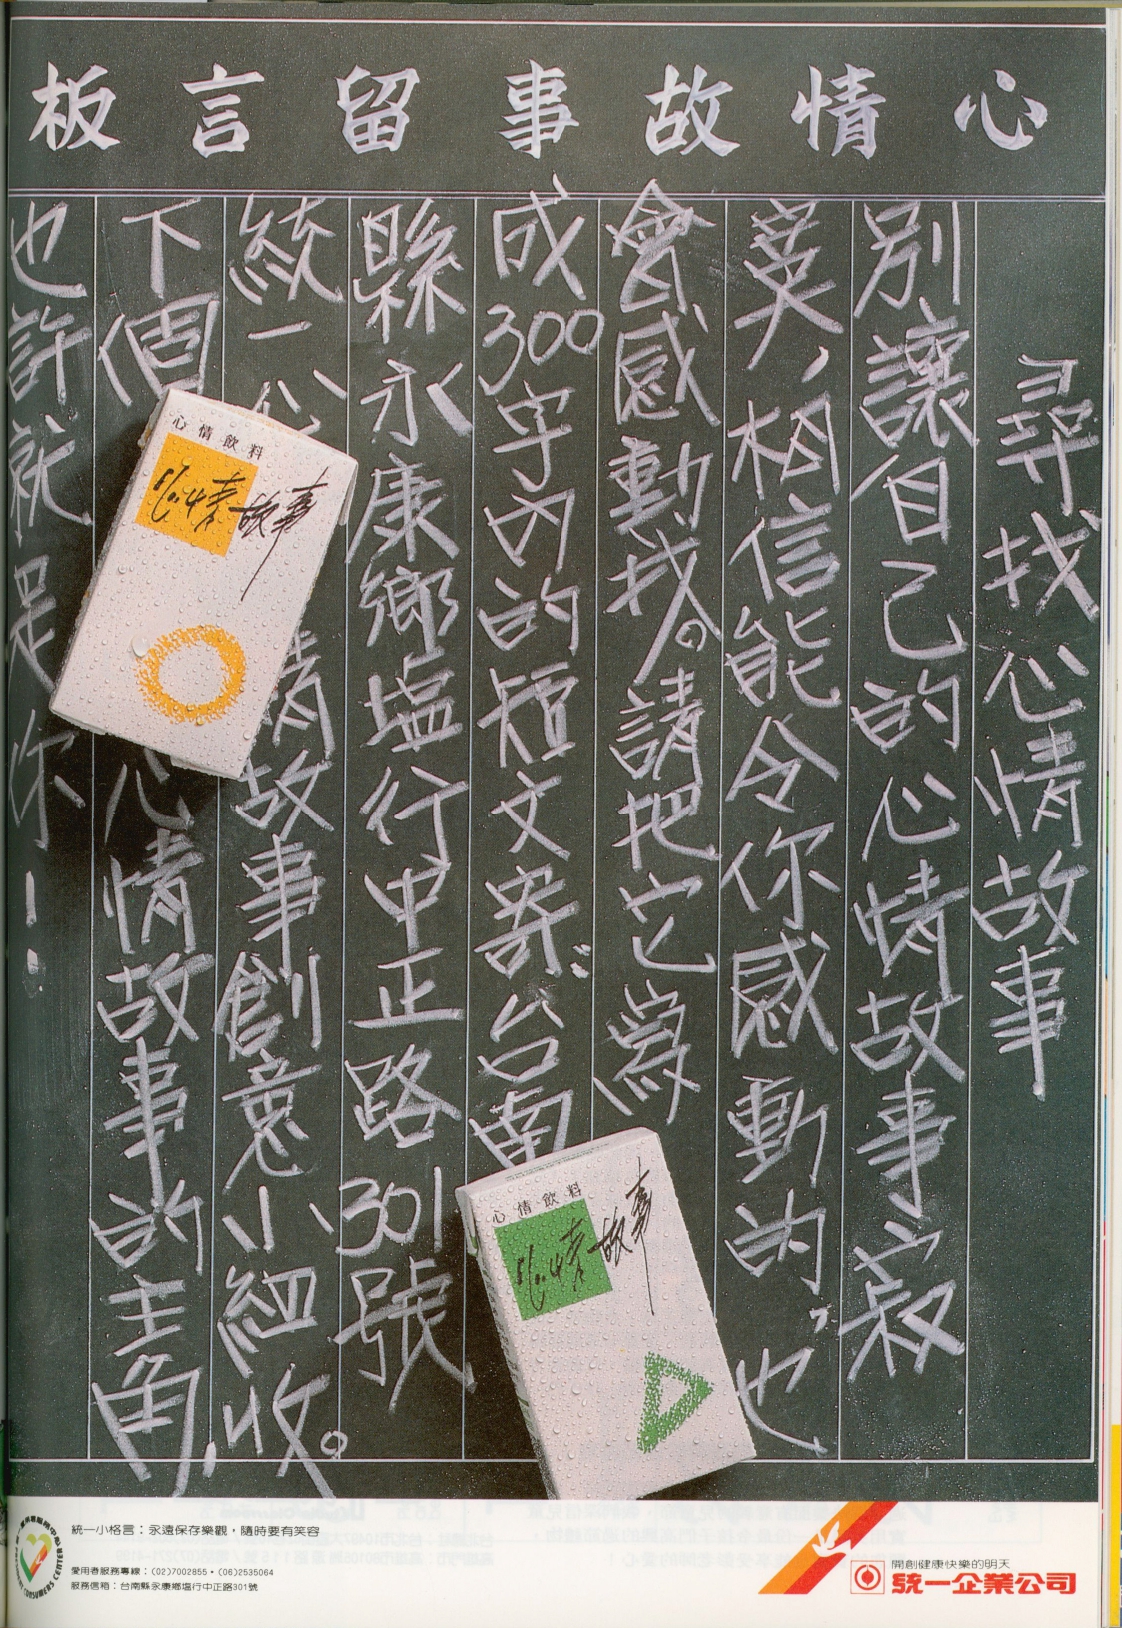 心情故事留言板
尋找心情故事
別讓自己的心情故事寂
寞，相信能令你感動的，也
會感動我人。請把它寫
成300字內的短文寄：台南
縣永康鄉塩行中正路301號
統一公 情故事創意小組收。
下個 心情故事的主角，
也許就是你！
心情飲料
心情故事
心情飲料
心情故事
統一小格言：永遠保存樂觀，隨時要有笑容
愛用者服務專線：(02)7002855•(06)2535064
服務信箱：台南縣永康鄉塩行中正路301號
CONSUMERS CENTER
開創健康快樂的明天
統一企業公司